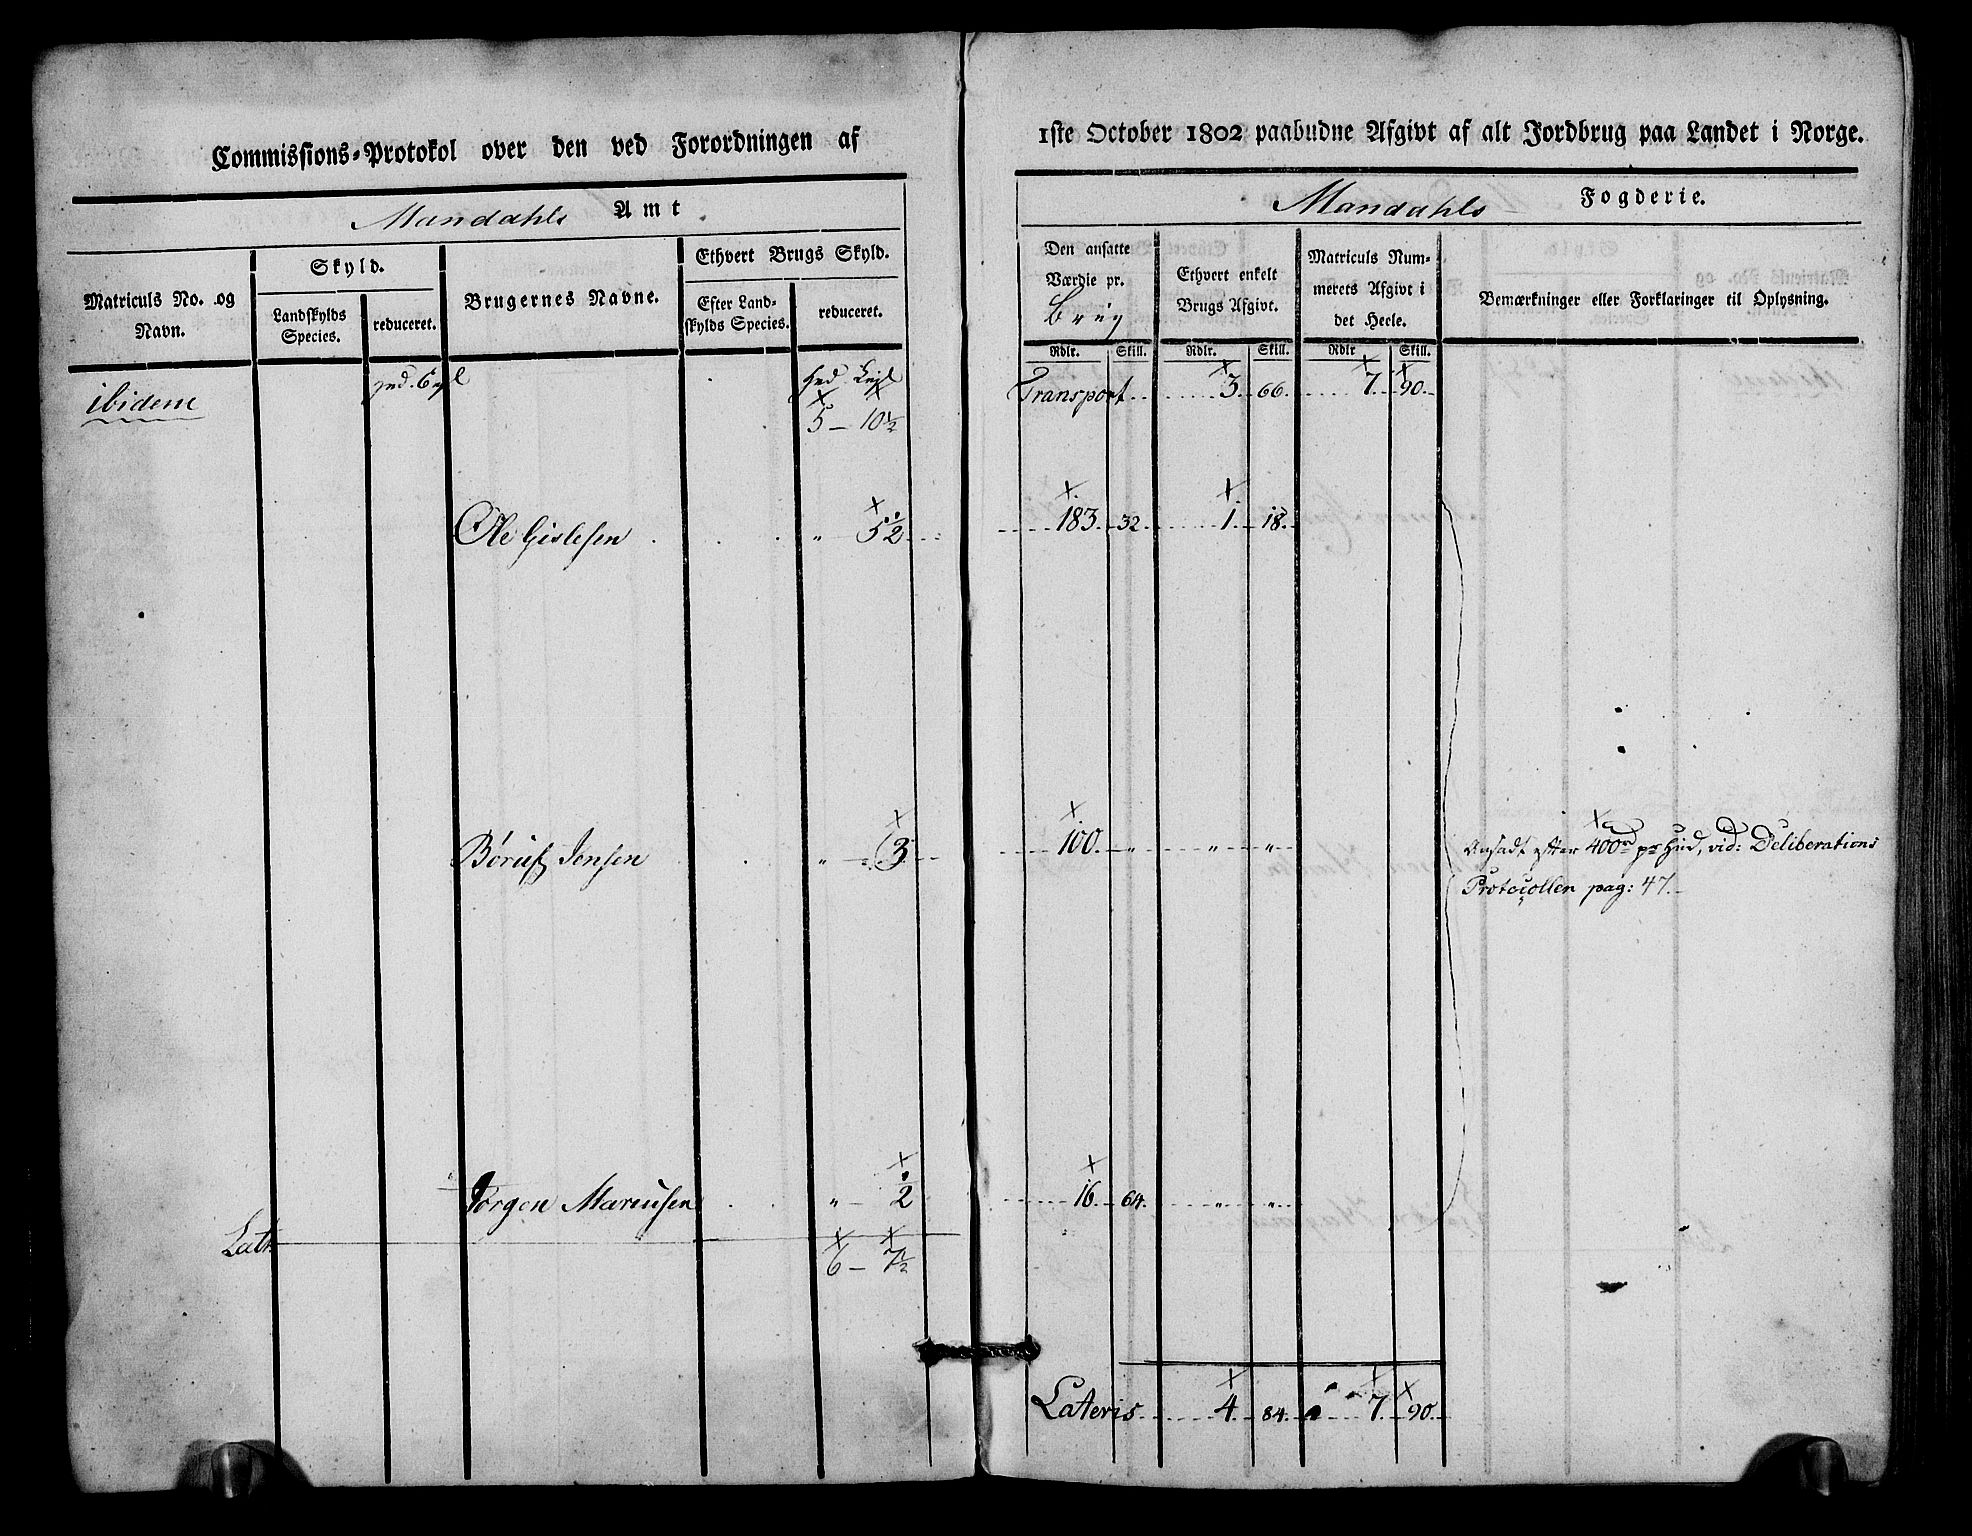 Commissions-Protokol over den ved Forordningen af
Mandahls Amt
Matriculs No. og Navn.
Skyld.
Landskylds Species.
reduceret.
Brugernes Navne.
Ethvert Brugs Skyld.
Efter Landskylds Species.
reduceret.
ibidem
5 — 10½
Ole Gislesen . . . " 5½
Børuf Jensen . " 3
Jørgen Mariusen . . " ½
Latr.
6 — 7½
1ste October 1802 paabudne Afgivt af alt Jordbrug paa Landet i Norge.
Mandahls Fogderie.
Den ansatte Værdie pr. Brug
Ethvert enkelt Brugs Afgivt.
Matriculs Nummerets Afgivt i det Heele.
Bemærkninger eller Forklaringer til Oplysning.
Rdlr. Skill. Rdlr. Skill. Rdlr Skill.
Transport 3. 66. 7. 90.
183. 32. 1. 18.
100. " " "
Ansadt efter 400rd pr Hud, vid: Deliberations
Protocollen pag: 47.
16. 64. " "
Lateris 4. 84. 7. 90.